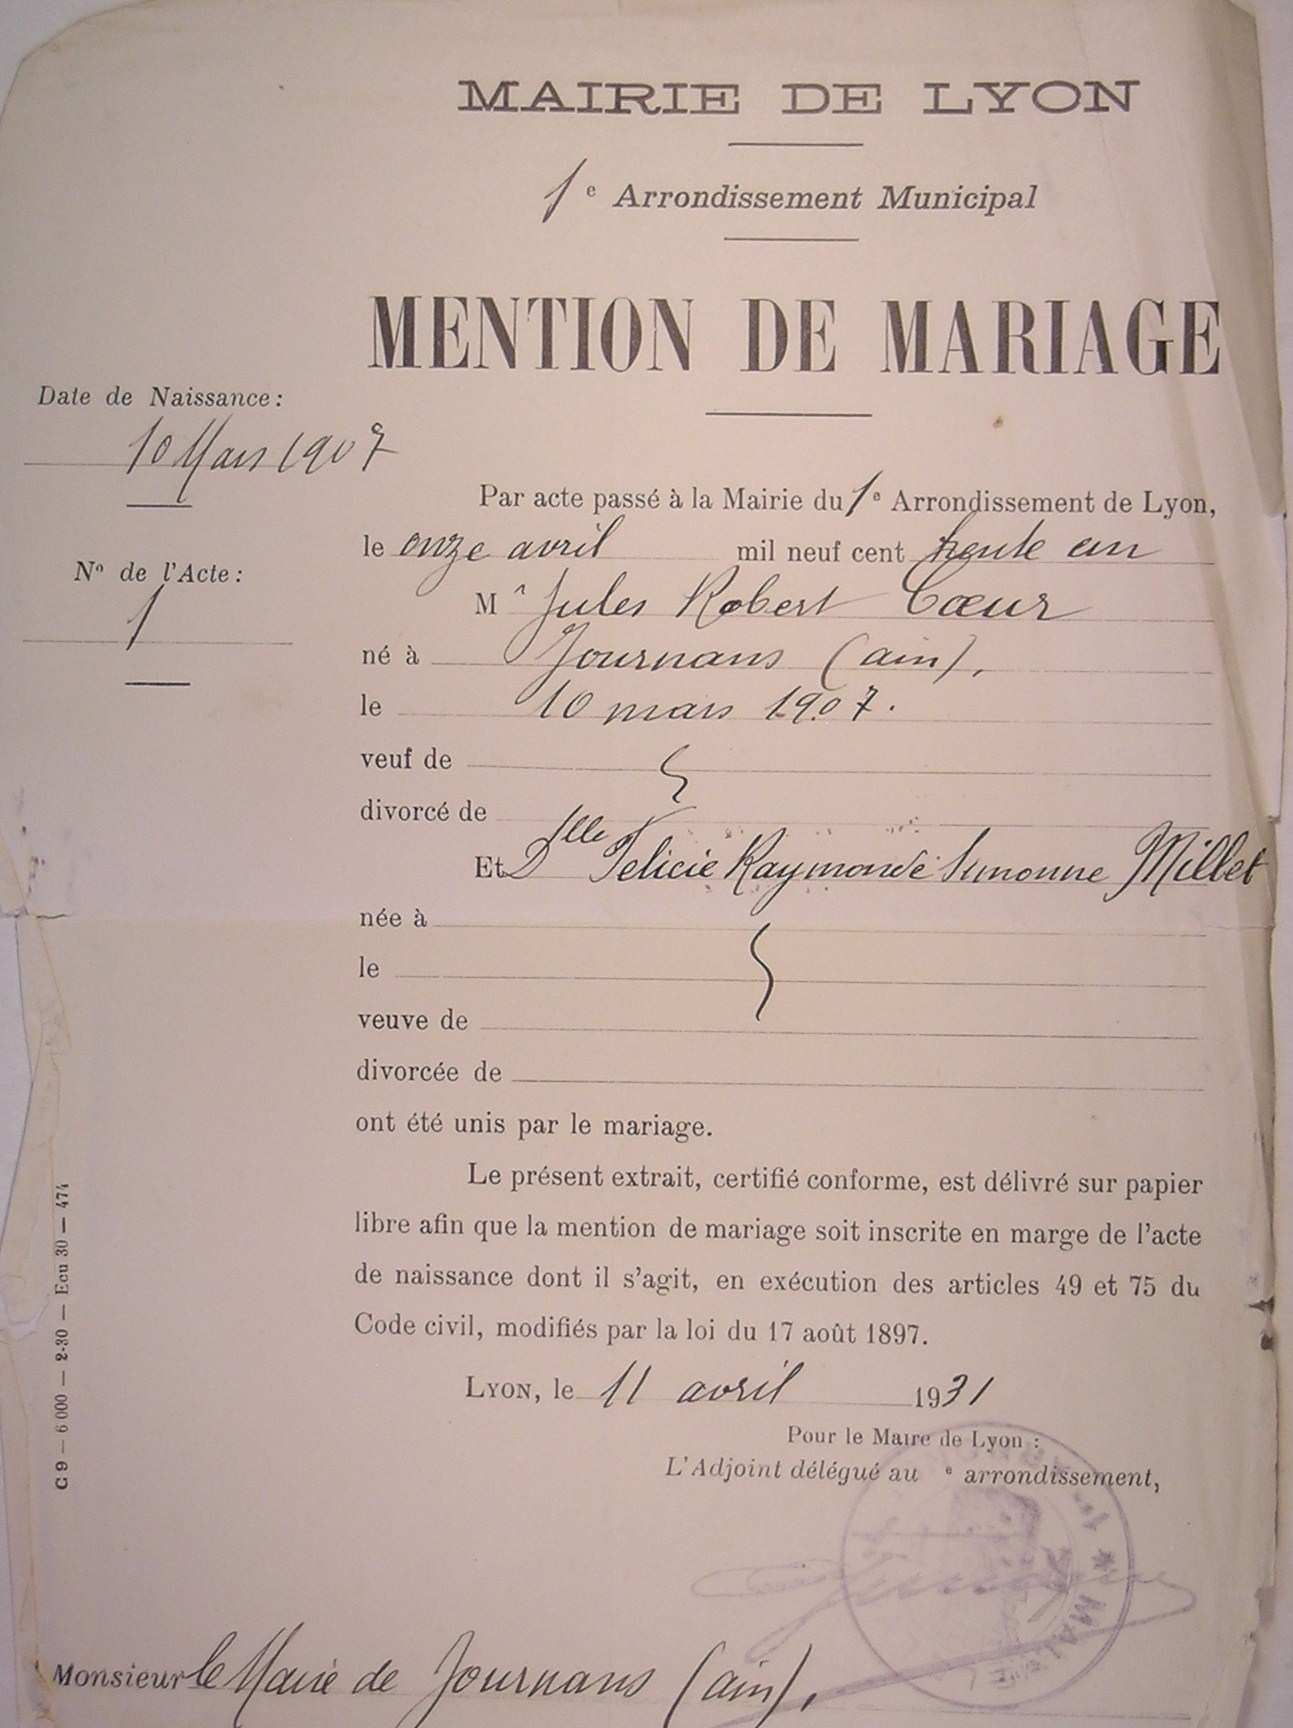 MAIRIE DE LYON
1e Arrondissement Municipal
MENTION DE MARIAGE
Date de Naissance :
10 Mars 1907
No de l'Acte :
1
Par acte passé à la Mairie du 1e Arrondissement de Lyon,
le onze avril mil neuf cent trente un
Mr Jules Robert Cœur
né à Journans (ain),
le 10 mars 1907.
veuf de
divorcé de
Et Dlle Felicie Raymonde Simonne Millet
née à
le
veuve de
divorcée de
ont été unis par le mariage.
Le présent extrait, certifié conforme, est délivré sur papier
libre afin que la mention de mariage soit inscrite en marge de l'acte
de naissance dont il s'agit, en exécution des articles 49 et 75 du
Code civil, modifiés par la loi du 17 août 1897.
LYON, le 11 avril 1931
Pour le Maire de Lyon :
L'Adjoint délégué au e arrondissement,
MAIRIE
Monsieur le Maire de Journans (ain),
C 9 — 6 000 — 2-30 — Ecu 30 — 474